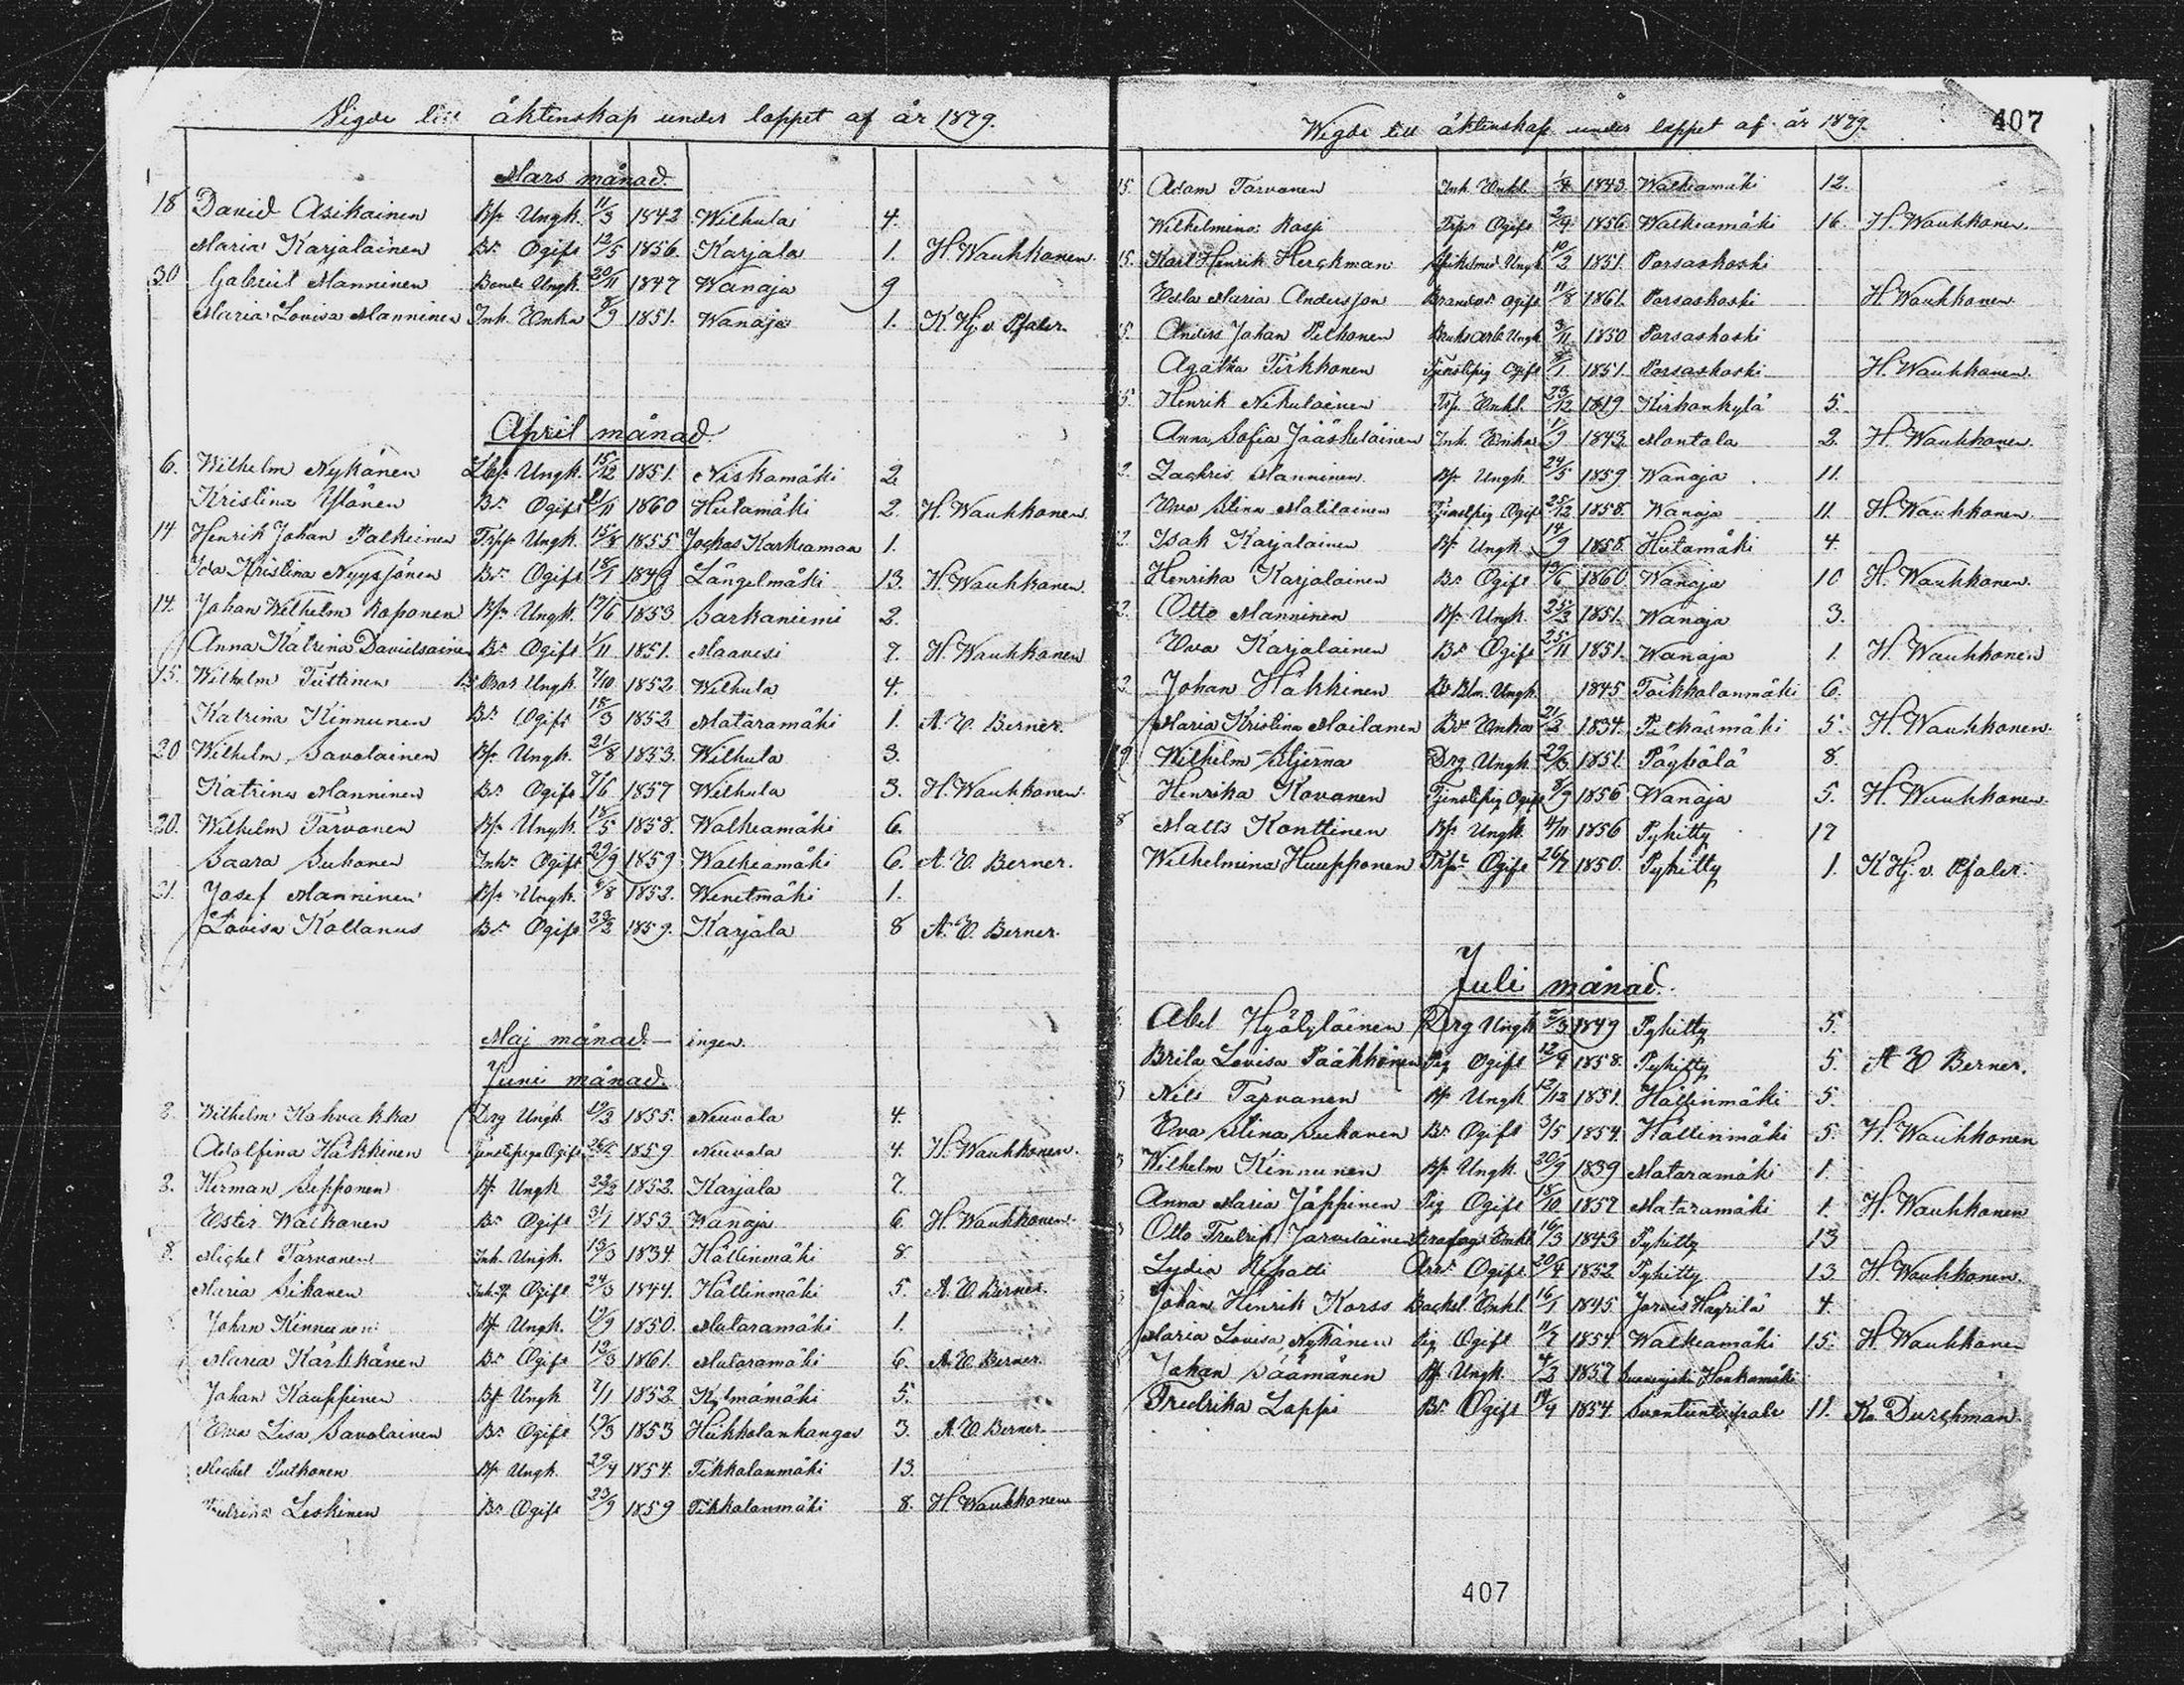 Wigde till äktenskap under loppet af år 1879.
Mars månad.
18 David Asikainen Bp. Ungk. 11/3 1842 Wilkula 4.
Maria Karjalainen Br. Ogift 12/5 1856. Karjala 1. H. Waukkonen.
30 Gabriel Manninen Bonde Ungk. 20/11 1847 Wanaja 9
Maria Lovisa Manninen Inh. Enka 8/9 1851. Wanaja 1. K. Hj. v. Pfaler.
April månad.
6. Wilhelm Nykänen Ungk. 15/12 1851. Niskamäki 2
Kristina Ylönen Br. Ogift 21/11 1860 Hutamäki 2. H. Waukkonen.
14 Henrik Johan Palkeinen Trpp. Ungk. 15/8 1855 Jockas Karkeamaa 1.
Ida Kristina Nyyssönen Br. Ogift 18/1 1849 Längelmäki 13. H. Waukkonen.
14. Johan Wilhelm Roponen Bp. Ungk. 17/6 1853. Sarkaniemi 2.
Anna Katrina Davidsainen Br. Ogift 1/11 1851. Maavesi 7. H. Waukkonen
15. Wilhelm Tuttinen Ungk. 7/10 1852 Wilkula 4.
Katrina Kinnunen Br. Ogift 18/3 1852 Mataramäki 1. A. E. Berner.
20 Wilhelm Savolainen Bp. Ungk. 21/8 1853. Wilkula 3.
Katrina Manninen Br. Ogift 7/6 1857 Wilkula 3. H. Waukkonen.
20. Wilhelm Tarvanen Bp. Ungk. 18/5 1858. Walkeamäki 6.
Saara Suhonen Inhr. Ogift 29/9 1859 Walkeamäki 6. A. E. Berner.
21. Josef Manninen Bp. Ungk. 4/8 1852. Wenetmäki 1.
Lovisa Kollanus Br. Ogift 23/2 1859. Karjala 8 A. E. Berner.
Maj månad. — ingen.
Juni månad.
8. Wilhelm Kohvakka Drg Ungk. 19/3 1855. Neuvola 4.
Adolfina Häkkinen Tjenstepiga Ogift 1859 Neuvola 4. H. Waukkonen.
8. Herman Sepponen Bp. Ungk 1852. Karjala 7.
Ester Waikonen Br. Ogift 31/1 1853. Wanaja 6. H. Waukkonen.
8. Mickel Tarvanen Inh. Ungk. 13/3 1834. Hällinmäki 8.
Maria Sikanen Ogift 24/3 1844. Hällinmäki 5. A. E. Berner.
Johan Kinnunen Bp. Ungk. 19/9 1850. Mataramäki 1.
Maria Kärkkänen Br. Ogift 13/3 1861. Mataramäki 6. A. E. Berner.
Johan Kauppinen Bp. Ungk 7/1 1852. Kylmämäki 5.
Ewa Lisa Savolainen Br. Ogift 19/3 1853 Hiikkolankangas 3. A. E. Berner.
Mickel Putkonen Bp. Ungk. 29/4 1854. Tikkalanmäki 13.
Leskinen Br. Ogift 23/9 1859 Tikkalanmäki 8. H. Waukkonen
407
Wigde till äktenskap under loppet af år 1879.
15. Adam Tarvanen Inh. Enkl. 1843. Walkeamäki 12.
Wilhelmina Rasp Trpr. Ogift 2/4 1856. Walkeamäki 16. H. Waukkonen.
15. Karl Henrik Herckman Ungk 10/2 1851. Porsaskoski
Edla Maria Andersson Ogift 11/8 1861. Porsaskoski H Waukkonen
15. Anders Johan Pelkonen Bruksarb Ungk 3/11 1850 Porsaskoski
Agatha Tirkkonen Tjenstepig Ogift 8/1 1851. Porsaskoski H. Waukkonen.
5. Henrik Nikulainen Trp. Enkl. 23/12 1819 Kirkonkylä 5.
Anna Sofia Jääskeläinen Inh. Enka 1/9 1843. Montola 2. H. Waukkonen.
2. Zachris Manninen Bp. Ungk 24/5 1859 Wanaja 11.
Ewa Stina Matilainen Tjenstpig Ogift 25/12 1858. Wanaja 11 H. Waukkonen.
2. Isak Karjalainen Bp. Ungk 14/9 1858. Hutamäki 4.
Henrika Karjalainen Br. Ogift 13/6 1860 Wanaja 10 H. Waukkonen.
2. Otto Manninen Bp. Ungk. 25/3 1851. Wanaja 3.
Ewa Karjalainen Br. Ogift 25/11 1851. Wanaja 1. H. Waukkonen
Johan Häkkinen Ungk. 1845 Toikkalanmäki 6.
Maria Kristina Moilanen Enka 1834. Pelkäsmäki 5. H. Waukkonen.
Wilhelm Stjerna Drg Ungk. 29/3 1851. Päykälä 8.
Henrika Kovanen Tjenstepig Ogift 8/9 1856 Wanaja 5. H. Waukkonen.
8 Matts Konttinen Bp. Ungk. 4/11 1856 Pykitty 17
Wilhelmina Huupponen Trpr Ogift 26/7 1850. Pykitty 1. K Hj. v. Pfaler.
Juli månad.
Abel Hyälyläinen Drg Ungk 2/3 1849 Pykitty 5.
Brita Lovisa Pääkkönen Pig Ogift 12/4 1858. Pykitty 5. A E Berner.
Nils Tarvanen Bp. Ungk 12/12 1851. Hällinmäki 5.
Ewa Stina Suhonen Br. Ogift 3/5 1854. Hällinmäki 5. H. Waukkonen
Wilhelm Kinnunen Bp. Ungk. 20/9 1839 Mataramäki 1.
Anna Maria Jäppinen Pig Ogift 18/10 1857 Mataramäki 1. H. Waukkonen
Otto Fredrik Jarvelainen Enkl 16/3 1843 Pykitty 13
Lydia Ripatti Ogift 20/4 1852. Pykitty 13 H. Waukkonen.
Johan Henrik Korss Backst. Enkl. 16/1 1845 Jorois Häyrilä 4.
Maria Lovisa Nykänen Pig Ogift 11/7 1854 Walkeamäki 15. H. Waukkonen
Johan Säämänen Bp. Ungk. 4/3 1857 Honkamäki
Fredrika Lappi Br. Ogift 14/9 1854 11. Ka. Durchman.
407